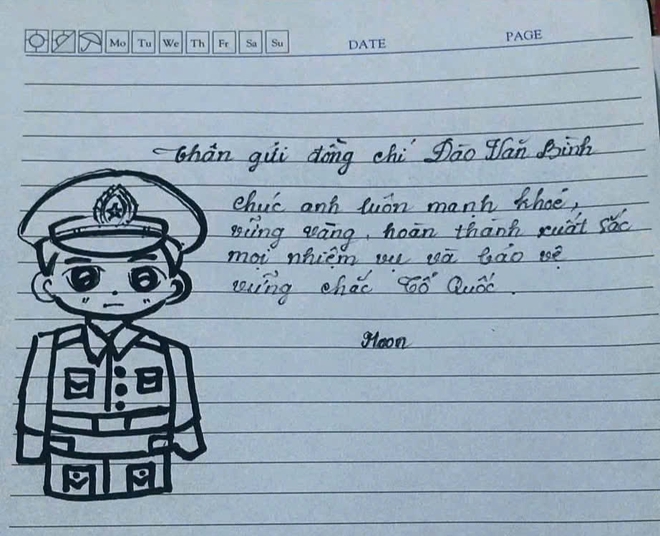 Mo Tu We Th Fr Sa Su DATE PAGE
Thân gửi đồng chí Đào Văn Bình
chúc anh luôn mạnh khoẻ,
vững vàng, hoàn thành xuất sắc
mọi nhiệm vụ và bảo vệ
vững chắc Tổ Quốc.
Moon